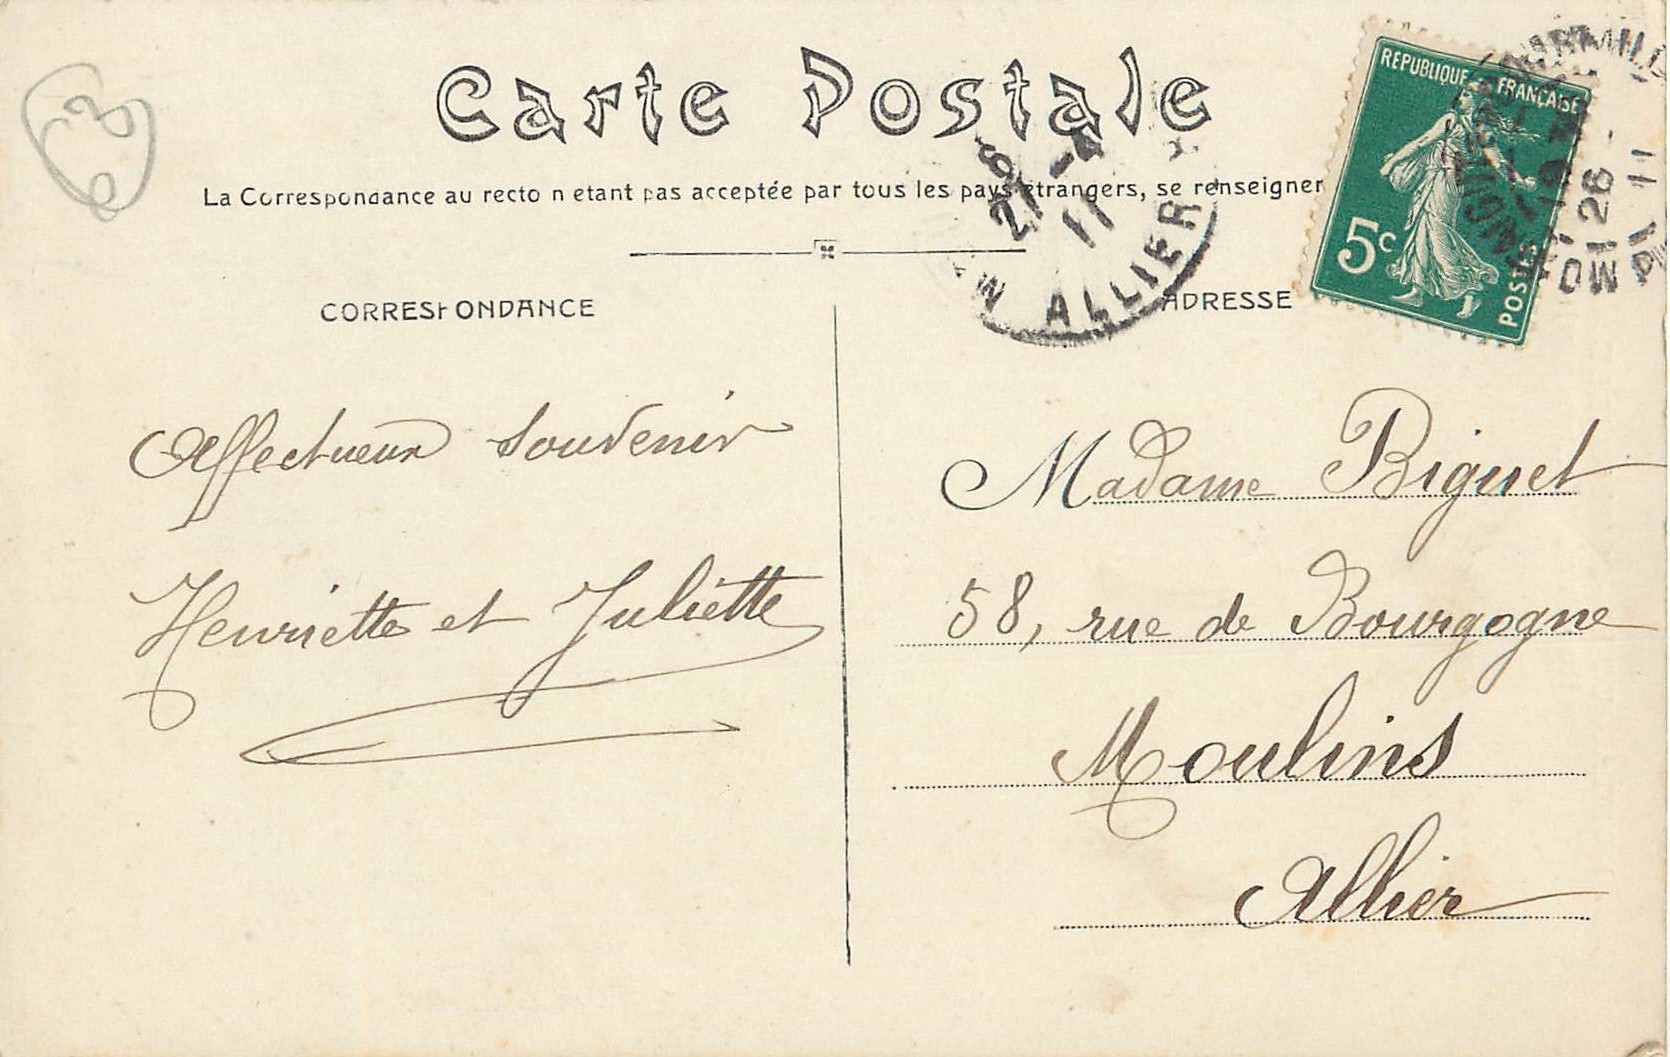 Carte Postale
La Correspondance au recto n etant pas acceptée par tous les pays étrangers, se renseigner
CORRESPONDANCE
ADRESSE
REPUBLIQUE FRANÇAISE
5c
POSTES
21 -4
11
ALLIER
Affectueux Souvenir
Henriette et Juliette
Madame Biguet
58, rue de Bourgogne
Moulins
Allier